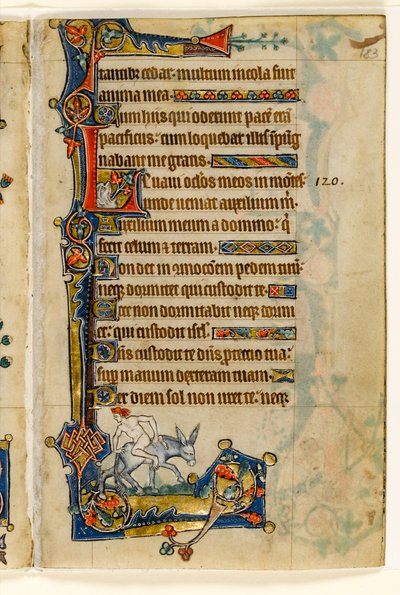 183
itantibꝫ cedar. multum incola fuit
anima mea.
Cum hiis qui oderunt pacē erā
pacificus. cum loquebar illis īpug
nabant me gratis.
Leuaui oclōs meos in mōtes 120.
unde ueniat auxilium m̄
Auxilium meum a domino. q̄
fecit celum ⁊ terram.
Non det in ꝯmocōem pedem tuū
neqꝫ dormitet qui custodit te.
Ecce non dormitabit neqꝫ dormi
et. qui custodit isrl̄.
Dn̄s custodit te dn̄s ꝓtectio tua.
sup̄ manum dexteram tuam.
Per diem sol non uret te. neqꝫ